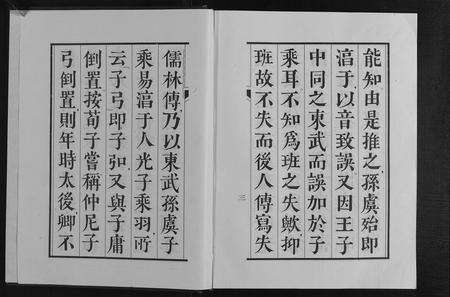 能知由是推之孫虞始即
湻于以音致誤又因王子
中同之東武而誤加於子
乘耳不知爲班之失歟抑
班故不失而後人傳寫失
三
儒林傳乃以東武孫虞子
乘易湻于人光子乘羽所
云子弓即子弘又與子庸
倒置按荀子嘗稱仲尼子
弓倒置則年時太後卿不